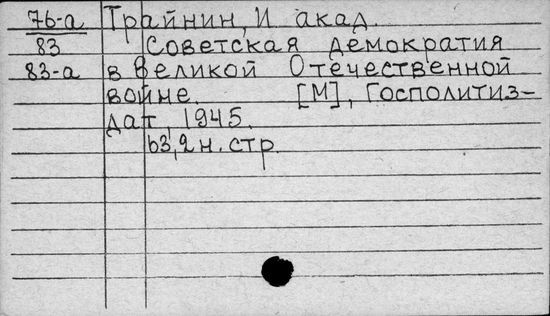 76-а Трайнин, И акад.
83 Советская демократия
83-а в Великой Отечественной
войне. [М], Госполитиз-
дат, 1945.
63,2 н. стр.